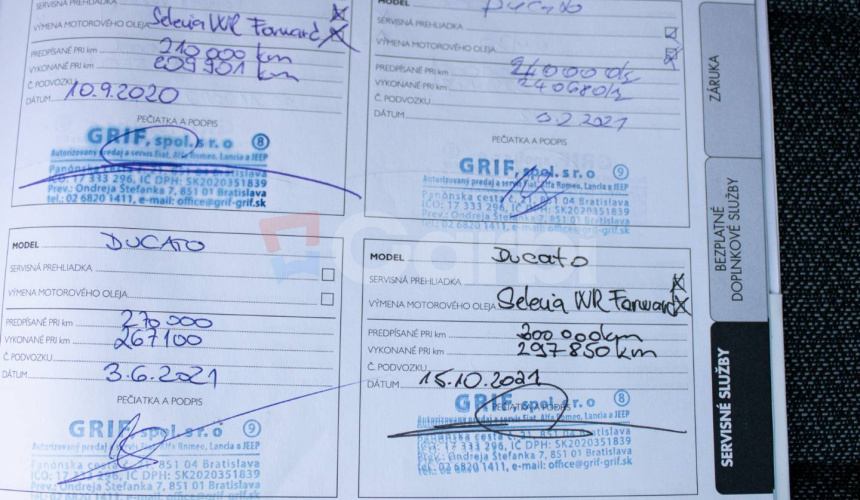 SERVISNÁ PREHLIADKA
VÝMENA MOTOROVÉHO OLEJA Selenia WR Forward
PREDPÍSANÉ PRI km 210 000 km
VYKONANÉ PRI km 209 901 km
Č. PODVOZKU
DÁTUM 10.9.2020
PEČIATKA A PODPIS
GRIF, spol. s r. o 8
Autorizovaný predaj a servis Fiat, Alfa Romeo, Lancia a JEEP
Panónska cesta
IČO: 17 333 296, IČ DPH: SK2020351839
Prev.: Ondreja Štefanka 7, 851 01 Bratislava
tel.: 02 6820 1411, e-mail: office@grif-grif.sk
MODEL Ducato
SERVISNÁ PREHLIADKA
VÝMENA MOTOROVÉHO OLEJA
PREDPÍSANÉ PRI km
VYKONANÉ PRI km
Č. PODVOZKU
DÁTUM 2.2021
PEČIATKA A PODPIS
GRIF, spol. s r. o 9
Autorizovaný predaj a servis Fiat, Alfa Romeo, Lancia a JEEP
Panónska cesta 851 04 Bratislava
IČO: 17 333 296, IČ DPH: SK2020351839
Prev.: Ondreja Štefanka 7, 851 01 Bratislava
tel.: 02 6820 1411, e-mail:
MODEL DUCATO
SERVISNÁ PREHLIADKA
VÝMENA MOTOROVÉHO OLEJA
PREDPÍSANÉ PRI km 270000
VYKONANÉ PRI km 267100
Č. PODVOZKU
DÁTUM 3.6.2021
PEČIATKA A PODPIS
GRIF, spol. s r. o 9
Autorizovaný predaj a servis Fiat, Alfa Romeo, Lancia a JEEP
Panónska cesta 851 04 Bratislava
IČO: 17 333 296, IČ DPH: SK2020351839
Prev.: Ondreja Štefanka 7, 851 01 Bratislava
MODEL Ducato
SERVISNÁ PREHLIADKA
VÝMENA MOTOROVÉHO OLEJA Selenia WR Forward
PREDPÍSANÉ PRI km 300 000km
VYKONANÉ PRI km 297 850 km
Č. PODVOZKU
DÁTUM 15.10.2021
PEČIATKA A PODPIS
GRIF, spol. s r. o 8
Autorizovaný predaj a servis Fiat, Alfa Romeo, Lancia a JEEP
Panónska cesta 851 04 Bratislava
IČO: 17 333 296, IČ DPH: SK2020351839
Prev.: Ondreja Štefanka 7, 851 01 Bratislava
tel.: 02 6820 1411, e-mail: office@grif-grif.sk
ZÁRUKA
BEZPLATNÉ
DOPLNKOVÉ SLUŽBY
SERVISNÉ SLUŽBY